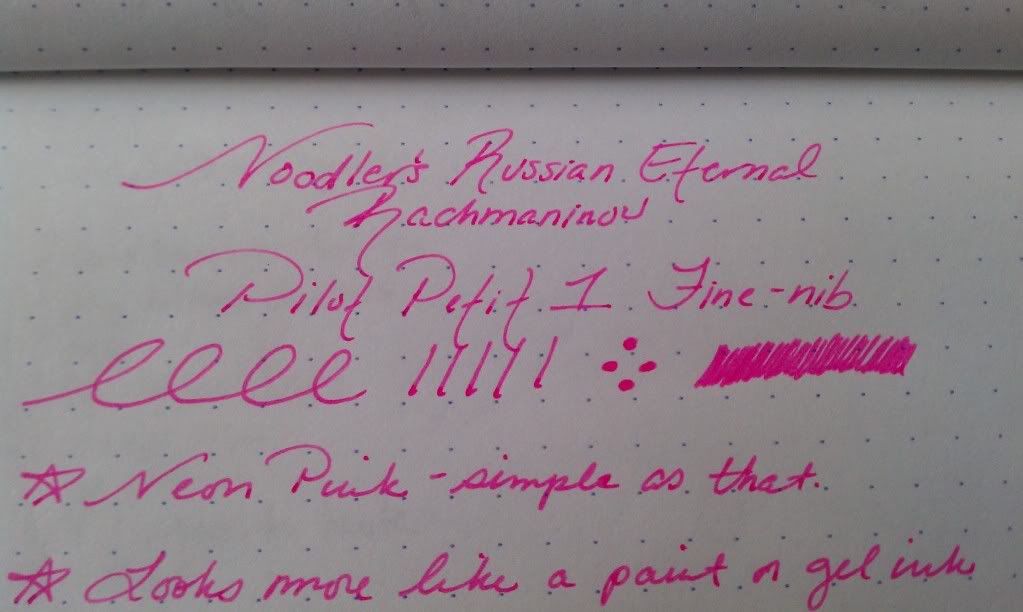 Noodler's Russian Eternal
Rachmaninov
Pilot Petit 1 Fine-nib
☆ Neon Pink - simple as that.
☆ Looks more like a paint or gel ink